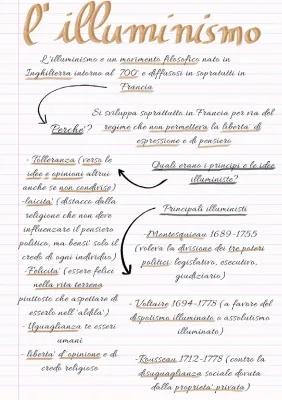 l'illuminismo
L'illuminismo e un movimento filosofico nato in
Inghilterra intorno al 700' e diffusosi in sopratutti in
Francia
Perché'?
Si sviluppa soprattutto in Francia per via del
regime che non permetteva la liberta' di
espressione e di pensiero
Quali erano i principi e le idee
illuministe?
- Tolleranza (verso le
idee e opinioni altrui
anche se non condivise)
-laicita' (distacco dalla
religione che non deve
influenzare il pensiero
politico, ma bensi' solo il
credo di ogni individuo)
-Felicita' (essere felici
nella vita terrena
piuttosto che aspettare di
esserlo nell'aldilà')
-Uguaglianza te esseri
umani
-liberta' d'opinione e di
credo religioso
Principali illuministi
-Montesquieau 1689-1755
(voleva la divisione dei tre poteri
politici: legislativo, esecutivo,
giudiziario)
- Voltaire 1694-1778 (a favore del
dispotismo illuminato o assolutismo
illuminato)
-Rousseau 1712-1778 (contro la
disuguaglianza sociale dovuta
dalla proprieta' privata)